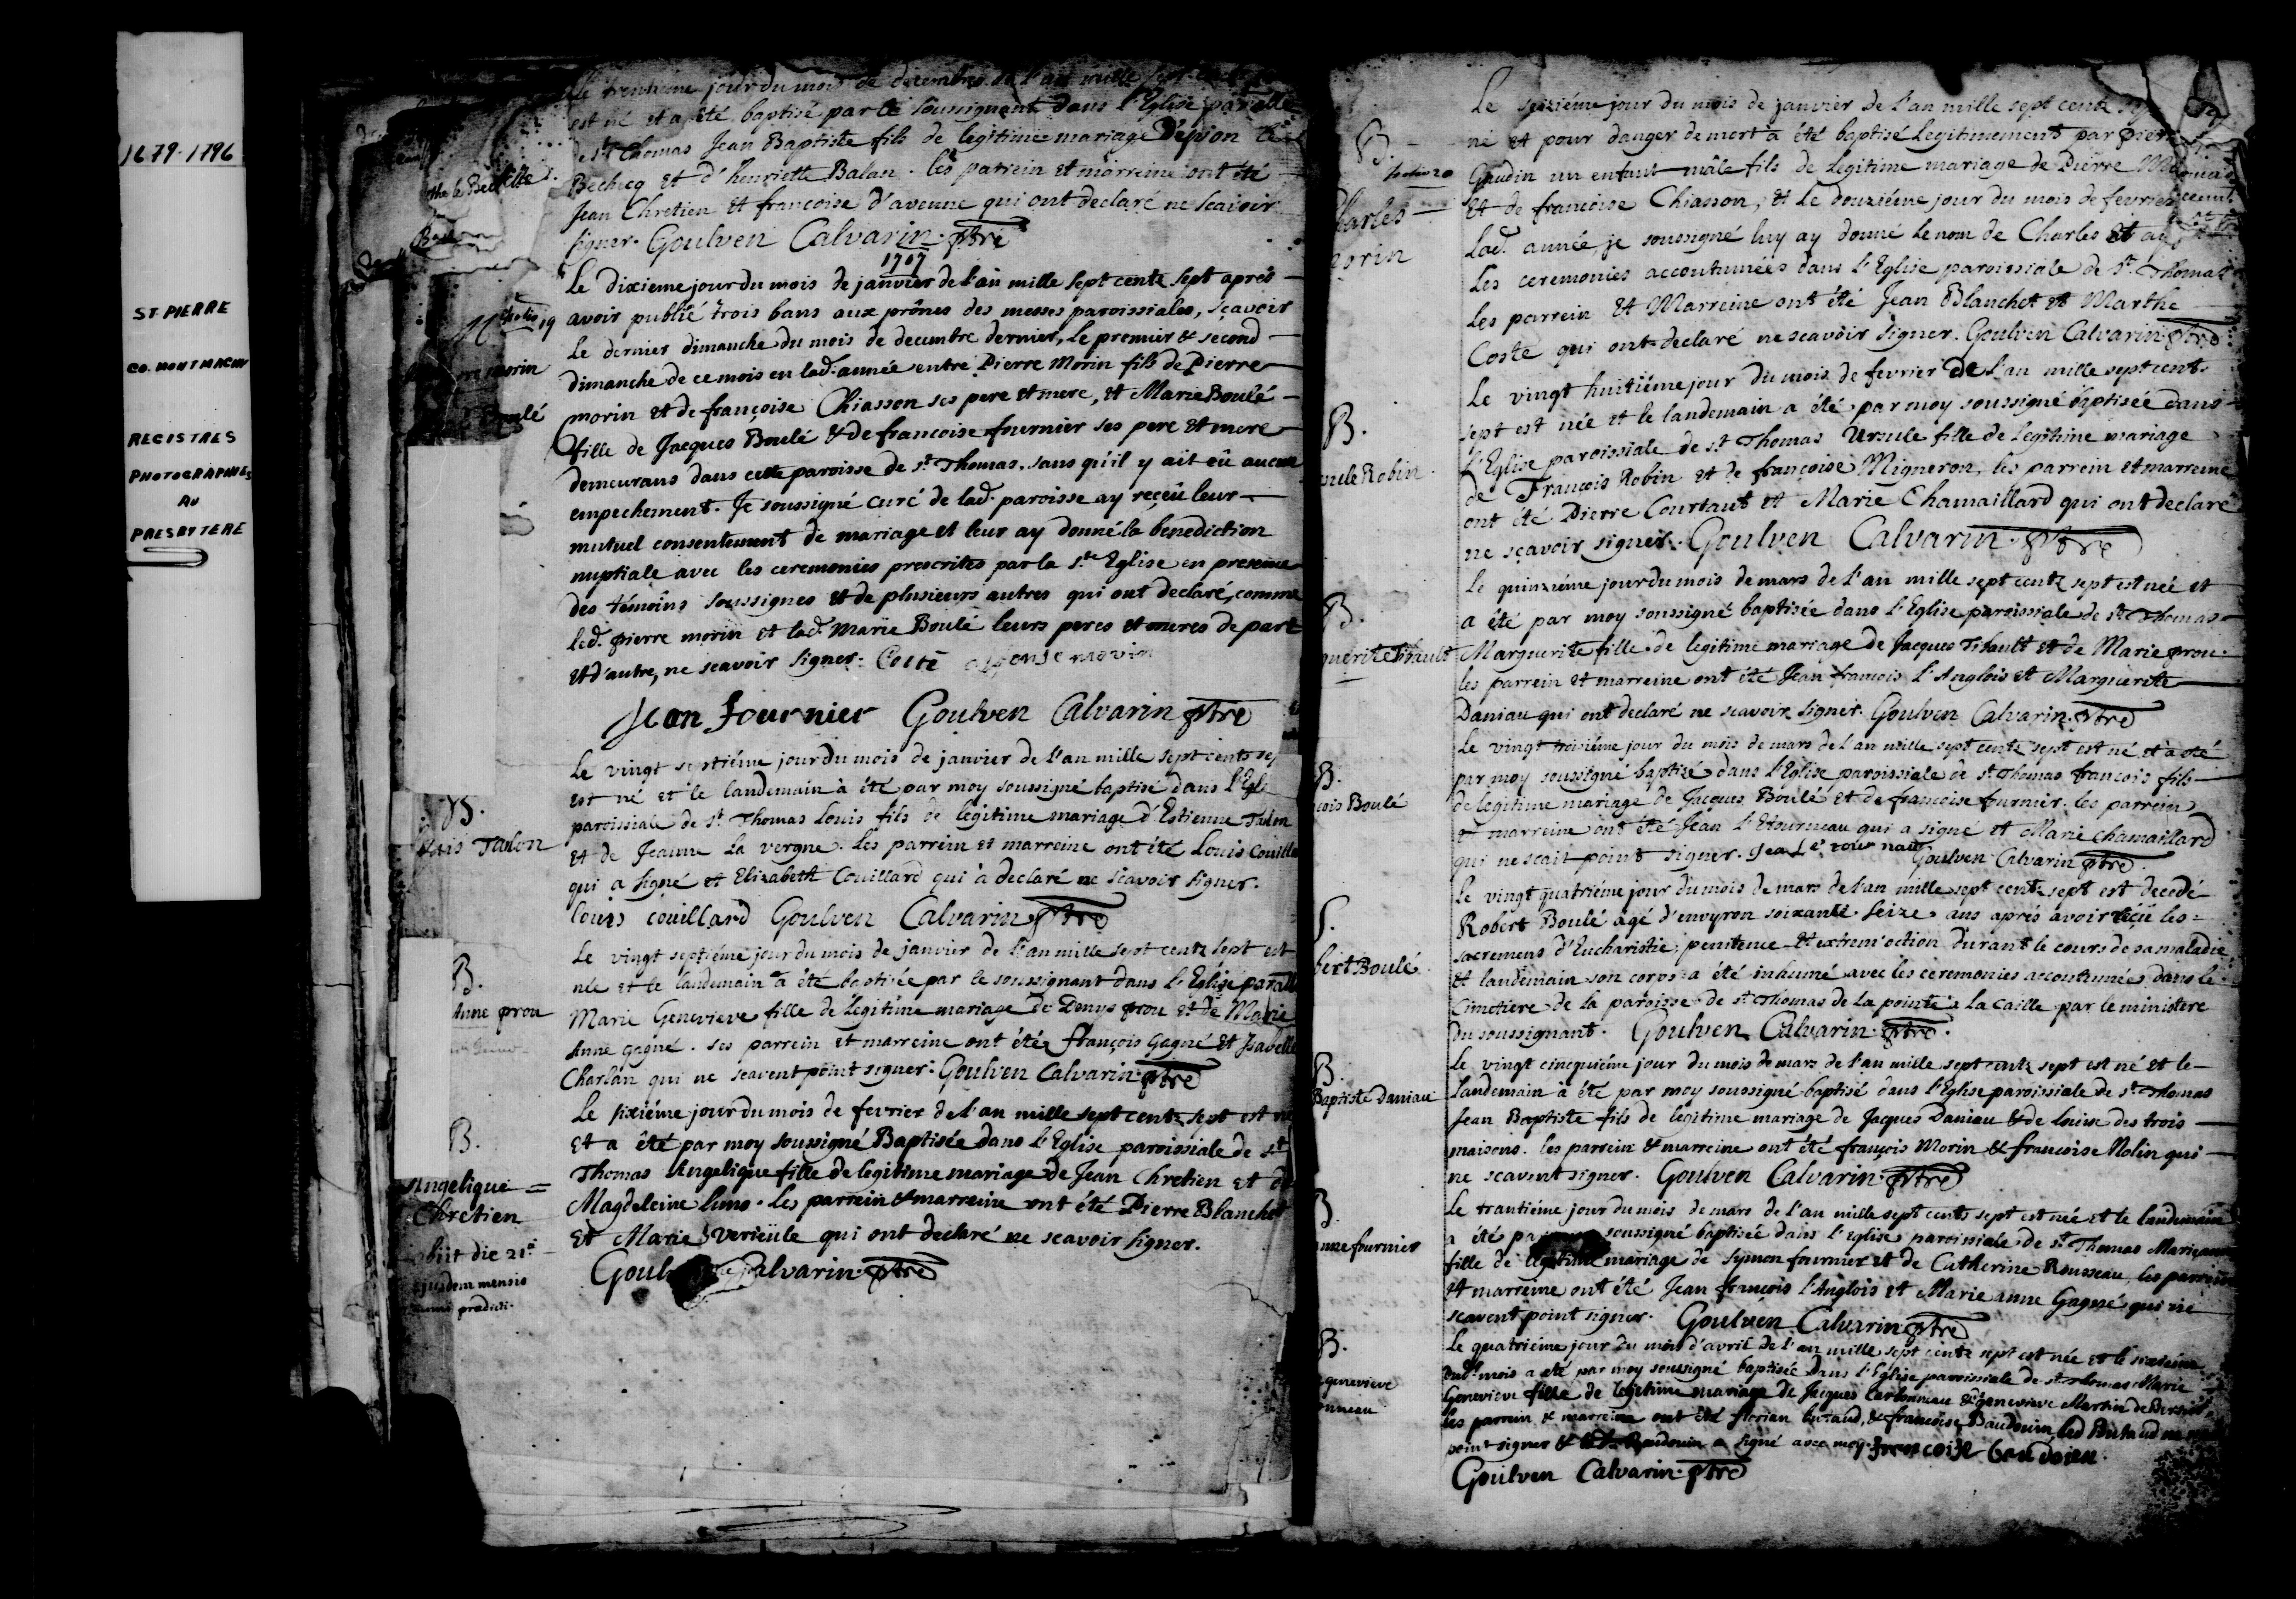 1679-1796
ST. PIERRE
CO. MONTMAGNY
REGISTRES
PHOTOGRAPHIES
AU
PRESBYTERE
Le trentiéme jour du mois de decembre de l'an mille sept
est né et a été baptisé par le soussignant dans l'Eglise par.alle
de st Thomas Jean Baptiste fils de legitime mariage d'epion le
Bechecq et d'henriette Balan. les patrein et marreine ont été
Jean Chretien et francoise d'avenne qui ont declaré ne scavoir
signer. Goulven Calvarin. ptre
1707
Le dixieme jour du mois de janvier de l'an mille sept centz sept aprés
avoir publié trois bans aux prônes des messes paroissiales, sçavoir
Le dernier dimanche du mois de decembre dernier, le premier & second
dimanche de ce mois en lad. année entre Pierre Morin fils de Pierre
morin
morin et de françoise Chiasson ses pere et mere, et Marie Boulé
Boulé
fille de Jacques Boulé & de francoise fournier ses pere et mere
demeurans dans cette paroisse de st Thomas. sans qu'il y ait eû aucun
empechement. Je soussigné curé de lad. paroisse ay reçeu leur
mutuel consentement de mariage et leur ay donné la benediction
nuptiale avec les ceremonies prescrites par la ste Eglise en presence
des témoins soussignes et de plusieurs autres qui ont declaré, comme
led. pierre morin et lad. Marie Boulé leurs peres et meres de part
et d'autre, ne scavoir signer. Coste alfonse morin
Jean fournier Goulven Calvarin ptre
Le vingt septiéme jour du mois de janvier de l'an mille sept cents sep
est né et le landemain à été par moy soussigné baptisé dans l'Egl
B.
paroissiale de st Thomas Louis fils de legitime mariage d'Estienne Talon
Talon
et de Jeanne La vergne. Les parrein et marreine ont été Louis Couilla
qui a signé et Elizabeth Couillard qui à declaré ne scavoir signer.
louis couillard Goulven Calvarin ptre
Le vingt septiéme jour du mois de janvier de l'an mille sept centz sept est
B.
née et le landemain a été baptisée par le soussignant dans l'Eglise par.alle
Anne prou
Marie Genevieve fille de Legitime mariage de Denys prou et de Marie
Anne gagné. ses parrein et marreine ont été françois Gagné et Isabelle
Charlan qui ne scavent point signer. Goulven Calvarin ptre
Le sixiéme jour du mois de fevrier de l'an mille sept centz sept est n
B.
et a été par moy soussigné Baptisée dans l'Eglise paroissiale de st
Angelique =
Chretien
Thomas Angelique fille de legitime mariage de Jean Chretien et de
Magdeleine . Les parrein & marreine ont été Pierre Blanchet
obiit die 21a
ejusdem mensis
anni prædicti.
et Marie verieule qui ont declaré ne scavoir signer.
Goul Calvarin ptre
Le seiziéme jour du mois de janvier de l'an mille sept centz
B.
né et pour danger de mort a été baptisé legitimement par pierre
Gaudin un enfant mâle fils de legitime mariage de Pierre
Charles
et de francoise Chiasson, et Le douziéme jour du mois de fevrier
orin
Lad. année, je soussigné luy ay donné le nom de Charles et
Les ceremonies accoutumées dans l'Eglise paroissiale de st Thomas
les parrein et Marreine ont été Jean Blanchet et Marthe
Coste qui ont declaré ne scavoir signer. Goulven Calvarin ptre
Le vingt huitiéme jour du mois de fevrier de l'an mille sept cents
B.
sept est née et le landemain a été par moy soussigné baptisée dans
l'Eglise paroissiale de st Thomas Ursule fille de legitime mariage
sule Robin.
de François Robin et de françoise Migneron, les parrein et marreine
ont été Pierre Courtaut et Marie Chamaillard qui ont declaré
ne sçavoir signer. Goulven Calvarin. ptre
Le quinziéme jour du mois de mars de l'an mille sept centz sept est née et
B.
a été par moy soussigné baptisée dans l'Eglise paroissiale de st Thomas
guerite Tibault
Marguerite fille de legitime mariage de Jacques Tibault et de Marie prou.
les parrein et marreine ont été Jean françois l'Anglois et Marguerite
Daniau qui ont declaré ne scavoir signer. Goulven Calvarin. ptre
Le vingt troisiéme jour du mois de mars de l'an mille sept centz sept est né et à été
B.
par moy soussigné baptisé dans l'Eglise paroissiale de st Thomas francois fils
cois Boulé
de legitime mariage de Jacques Boulé et de francoise fournier. les parrein
et marreine ont été Jean l'Etourneau qui a signé et Marie chamaillard
qui ne scait point signer. Jean letournau
Goulven Calvarin ptre.
Le vingt quatriéme jour du mois de mars de l'an mille sept centz sept est decedé
S.
Robert Boulé agé d'envyron soixante seize ans aprés avoir reçû les
sacremens d'Eucharistie, penitence et extrem'oction durant le cours de sa maladie
bert Boulé.
et landemain son corps a été inhumé avec les ceremonies accoutumées dans le
Cimetiere de la paroisse de st Thomas de la pointe a la Caille par le ministere
du soussignant. Goulven Calvarin. ptre.
Le vingt cinquiéme jour du mois de mars de l'an mille sept centz sept est né et le
B.
Baptiste Daniau
landemain à été par moy soussigné baptisé dans l'Eglise paroissiale de st Thomas
Jean Baptiste fils de legitime mariage de Jacques Daniau & de Louise des trois
maisons. les parrein & marreine ont été françois Morin & francoise Nolin qui
ne scavent signer. Goulven Calvarin. ptre
Le trantiéme jour du mois de mars de l'an mille sept centz sept est née et le landemain
B
a été soussigné baptisée dans l'Eglise paroissiale de st Thomas Marieanne
anne fournier
fille de legitime mariage de Symon fournier et de Catherine Rousseau, les parrein
et marreine ont été Jean françois l'Anglois et Marie anne Gagné qui ne
scavent point signer. Goulven Calvarin ptre
Le quatriéme jour du mois d'avril de l'an mille sept centz sept est née et le
B.
dud. mois a été par moy soussigné baptisée dans l'Eglise paroissiale de st Thomas Marie
genevieve
Genevieve fille de legitime mariage de Jacques Carbonneau & de genevieve Martin
onneau
les parrein & marreine ont été florian butaud, & francoise Baudouin led Butaud ne
point signer & Baudouin a signé avec moy. francoise baudoien.
Goulven Calvarin. ptre